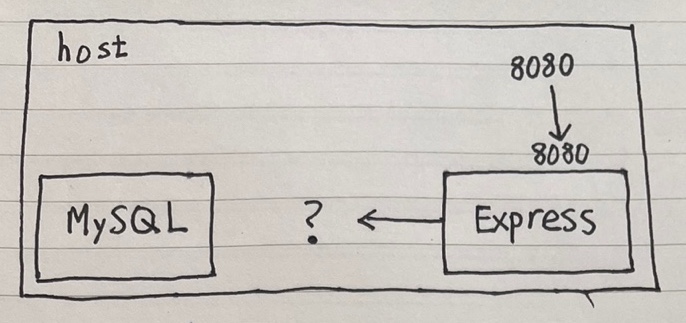 host
8080
8080
MySQL
?
Express